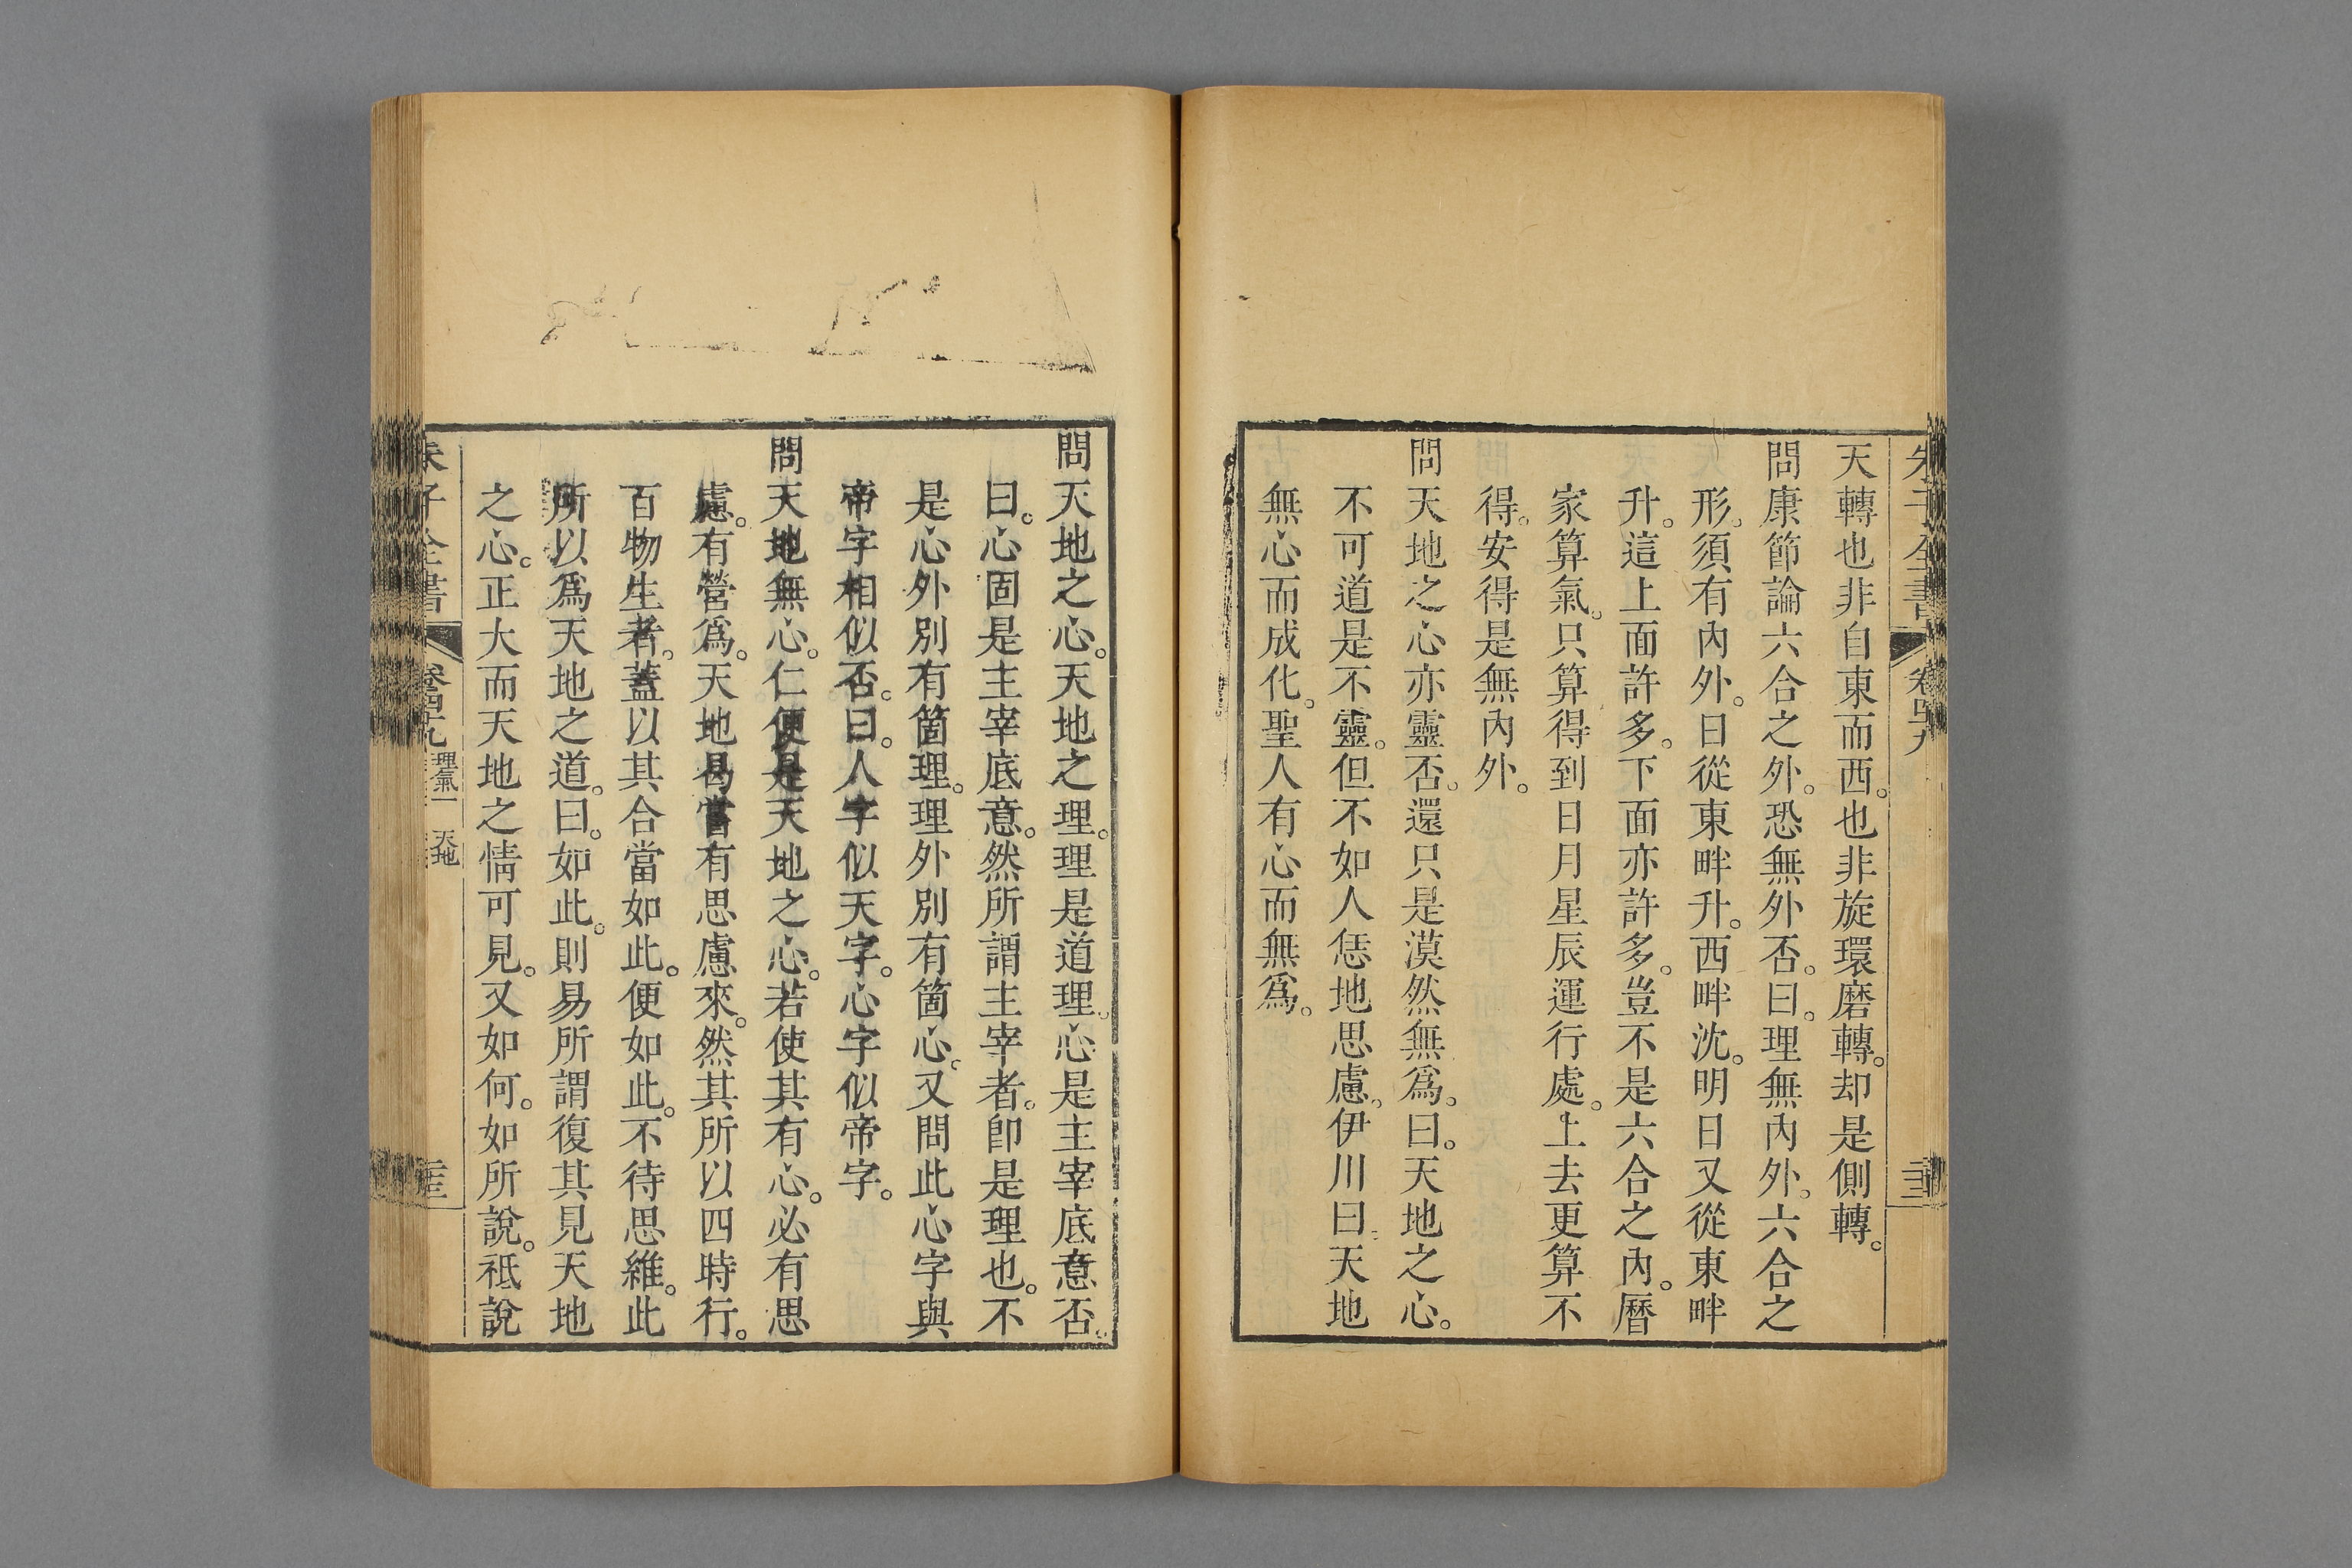 天轉也非自東而西。也非旋環磨轉。却是側轉。
問康節論六合之外。恐無外否。曰。理無內外。六合之
形。須有內外。日從東畔升。西畔沈。明日又從東畔
升。這上面許多。下面亦許多。豈不是六合之內。曆
家算氣。只算得到日月星辰運行處。上去更算不
得。安得是無內外。
問天地之心亦靈否。還只是漠然無爲。曰。天地之心。
不可道是不靈。但不如人恁地思慮。伊川曰。天地
無心而成化。聖人有心而無爲。
問天地之心。天地之理。理是道理。心是主宰底意否。
曰。心固是主宰底意。然所謂主宰者。卽是理也。不
是心外別有箇理。理外別有箇心。又問此心字與
帝字相似否。曰。人字似天字。心字似帝字。
問天地無心。仁便是天地之心。若使其有心。必有思
慮。有營爲。天地曷嘗有思慮來。然其所以四時行。
百物生者。蓋以其合當如此。便如此。不待思維。此
所以爲天地之道。曰。如此。則易所謂復其見天地
之心。正大而天地之情可見。又如何。如所說。祗說
朱子全書
卷四十九
理氣一 天地